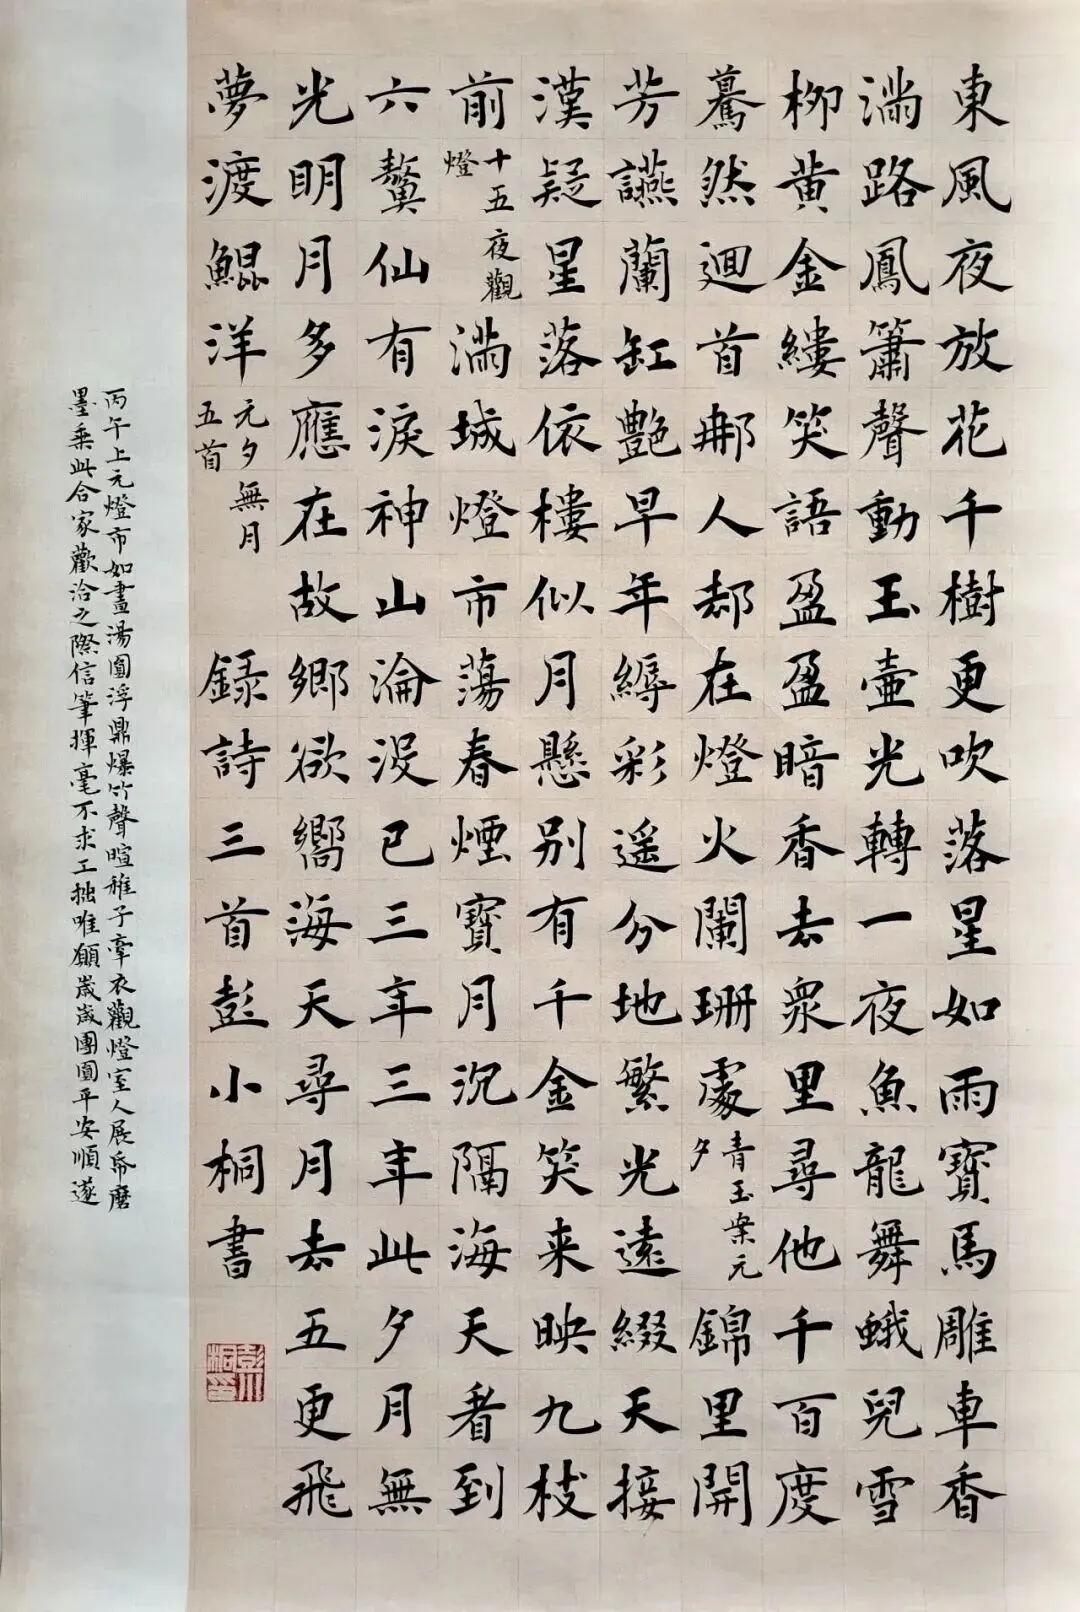 東風夜放花千樹更吹落星如雨寶馬雕車香
滿路鳳簫聲動玉壺光轉一夜魚龍舞蛾兒雪
柳黃金縷笑語盈盈暗香去眾里尋他千百度
驀然迴首那人却在燈火闌珊處青玉案元夕錦里開
芳讌蘭缸艷早年縟彩遥分地繁光遠綴天接
漢疑星落依樓似月懸別有千金笑来映九枝
前十五夜觀燈滿城燈市蕩春煙寶月沉隔海天看到
六鰲仙有淚神山淪没已三年三年此夕月無
光明月多應在故鄉欲嚮海天尋月去五更飛
夢渡鯤洋元夕無月五首録詩三首彭小桐書
彭小桐印
丙午上元燈市如晝湯圓浮鼎爆竹聲暄稚子牽衣觀燈室人展帋磨
墨乘此合家歡洽之際信筆揮毫不求工拙唯願歲歲團圓平安順遂